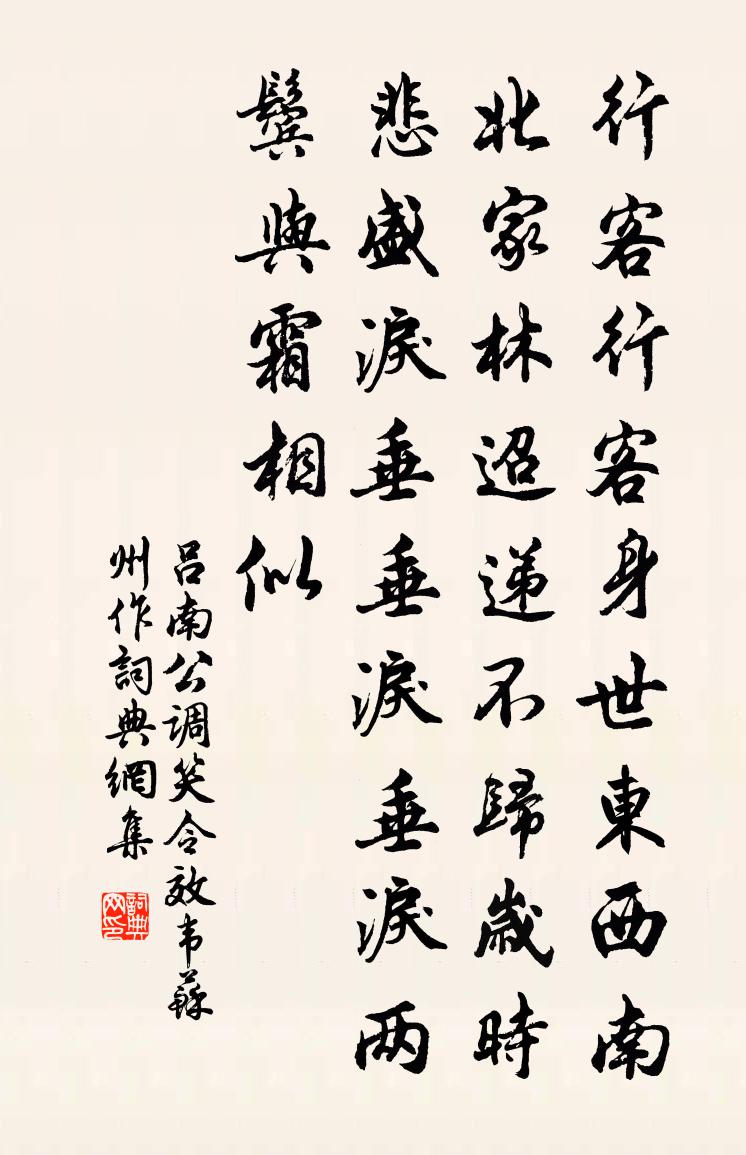 行客行客身世東西南
北家林迢递不歸歲時
悲盛淚垂垂淚垂淚两
鬓與霜相似
吕南公调笑令效韦蘇
州作詞典網集
詞典网印